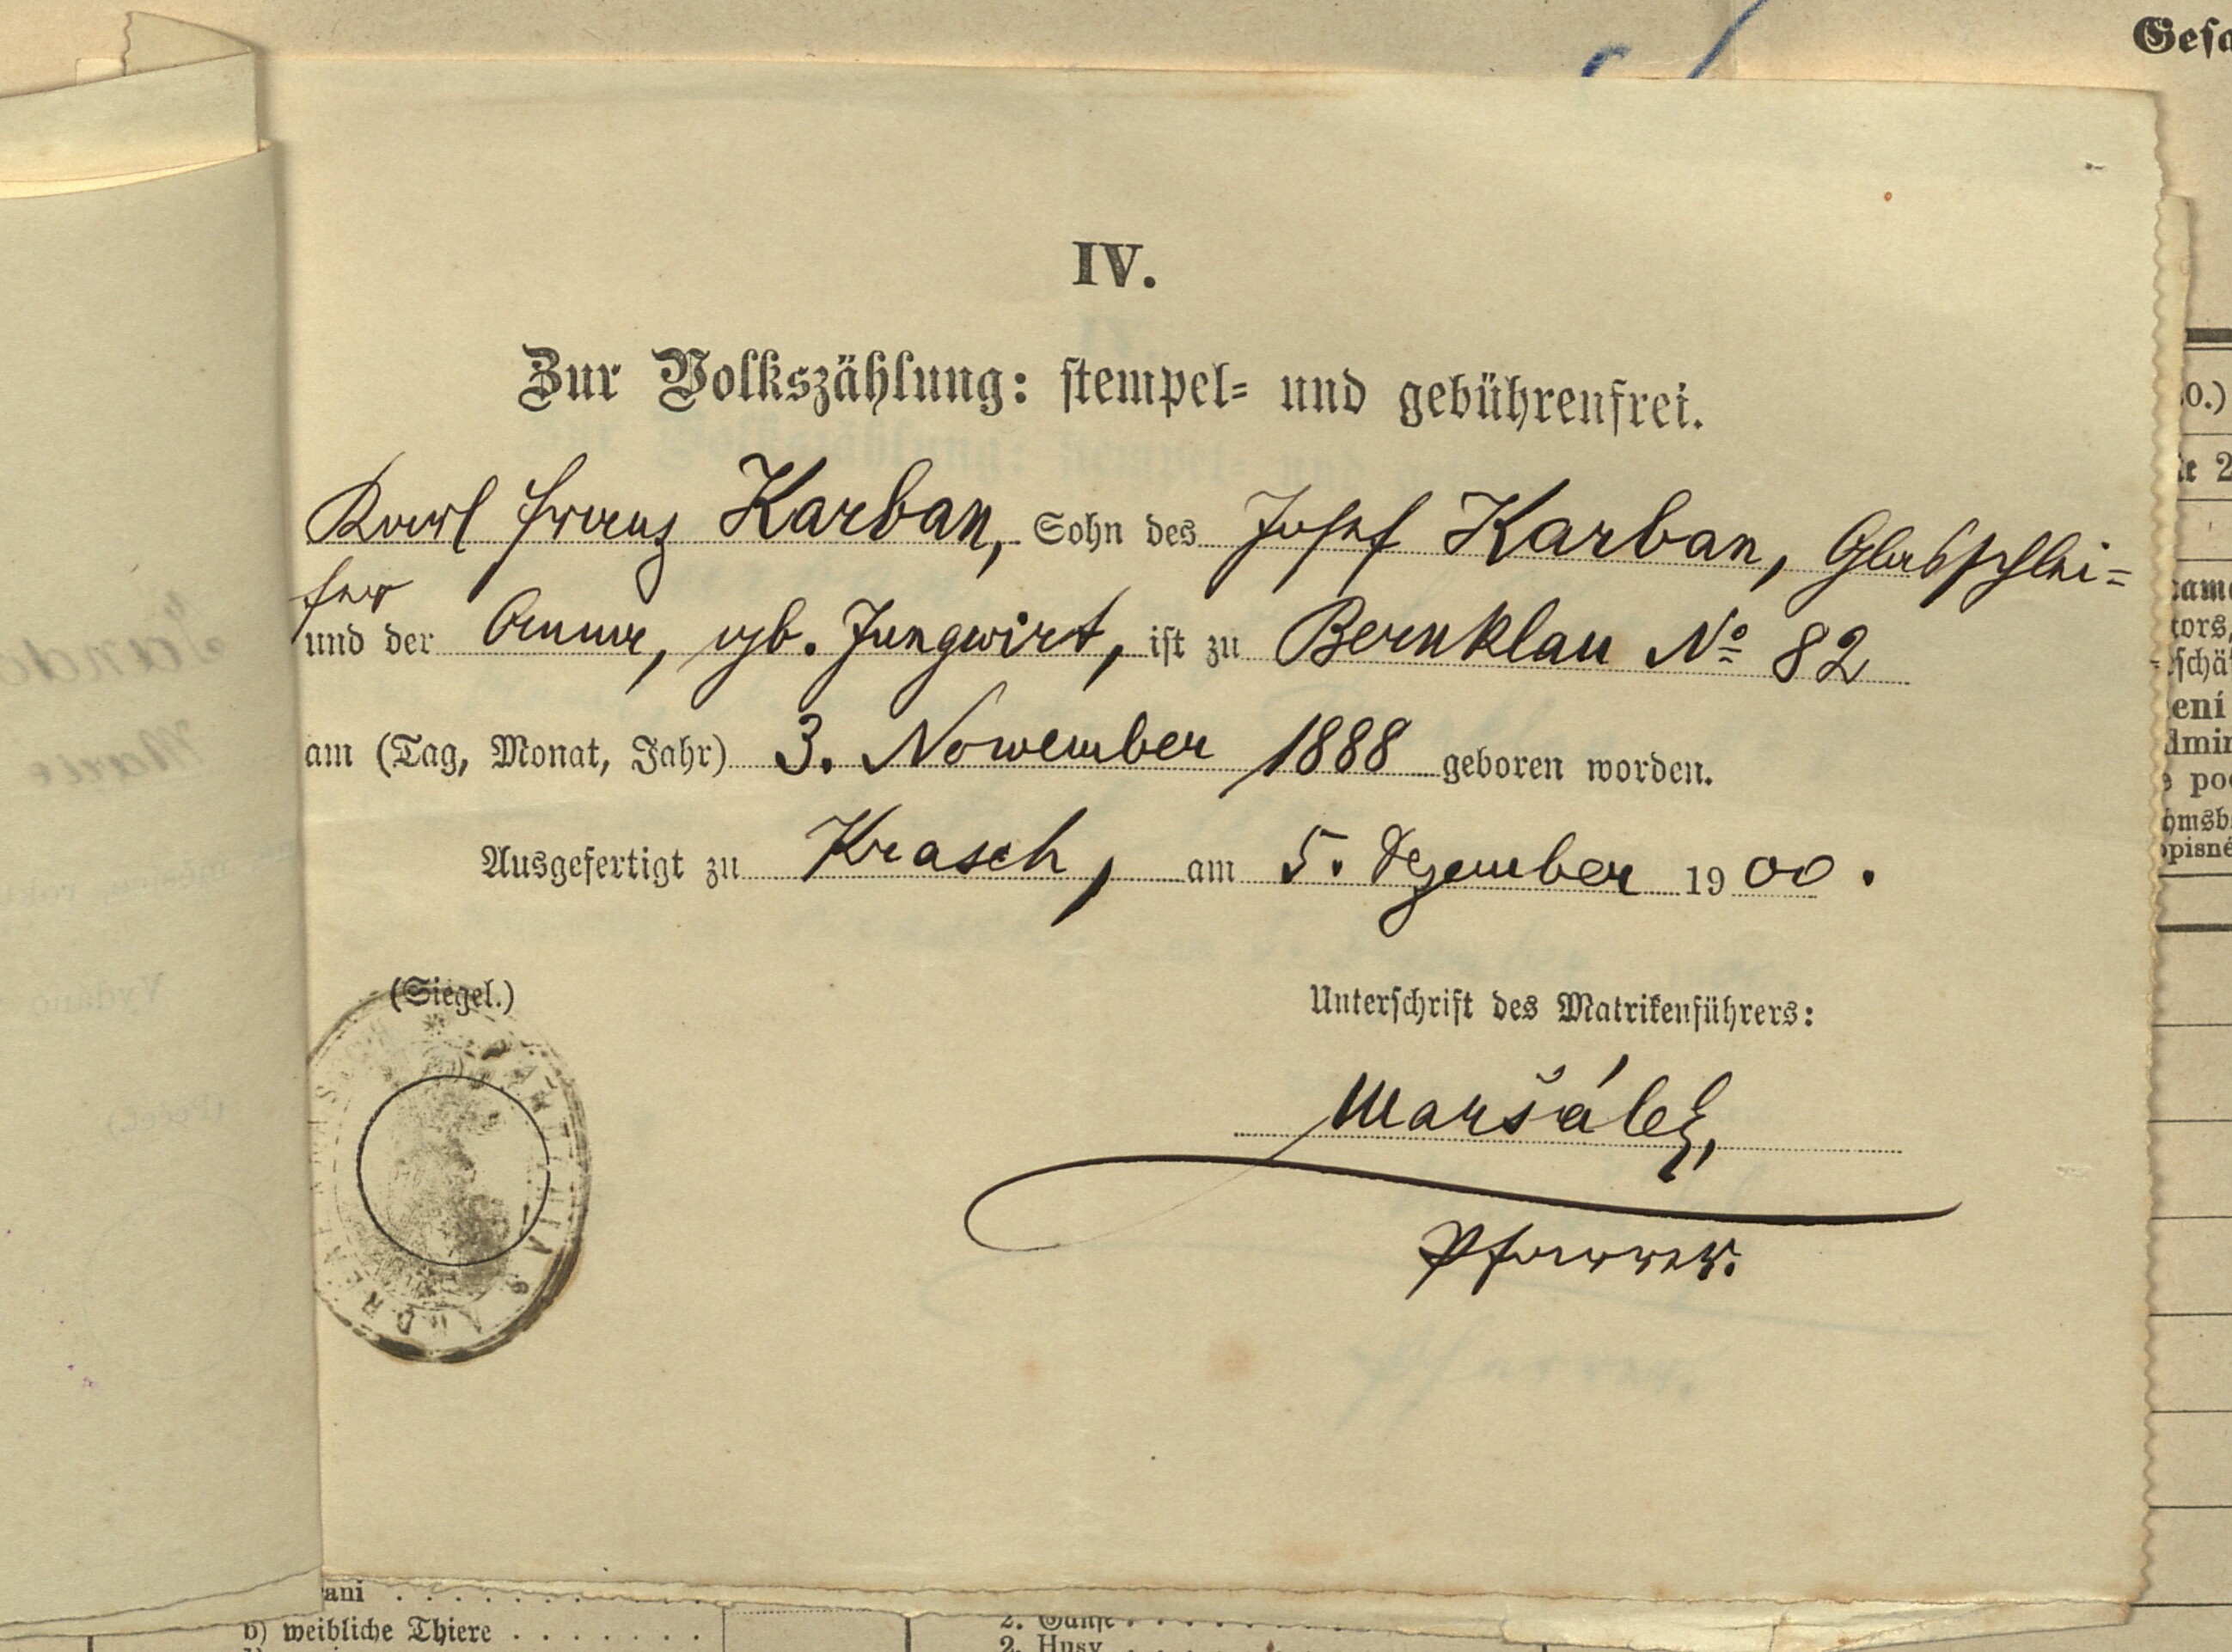 IV.
Zur Volkszählung: stempel= und gebührenfrei.
Karl Franz Karban, Sohn des Josef Karban, Glasschlei=
fer
und der Anna, geb. Jungwirt, ist zu Bernklau № 82
am (Tag, Monat, Jahr) 3. November 1888 geboren worden.
Ausgefertigt zu Krasch, am 5. Dezember 1900.
(Siegel.)
Unterschrift des Matrikenführers:
Maršálek,
Pfarrer.
b) weibliche Thiere
2. Gänse
2. Husy